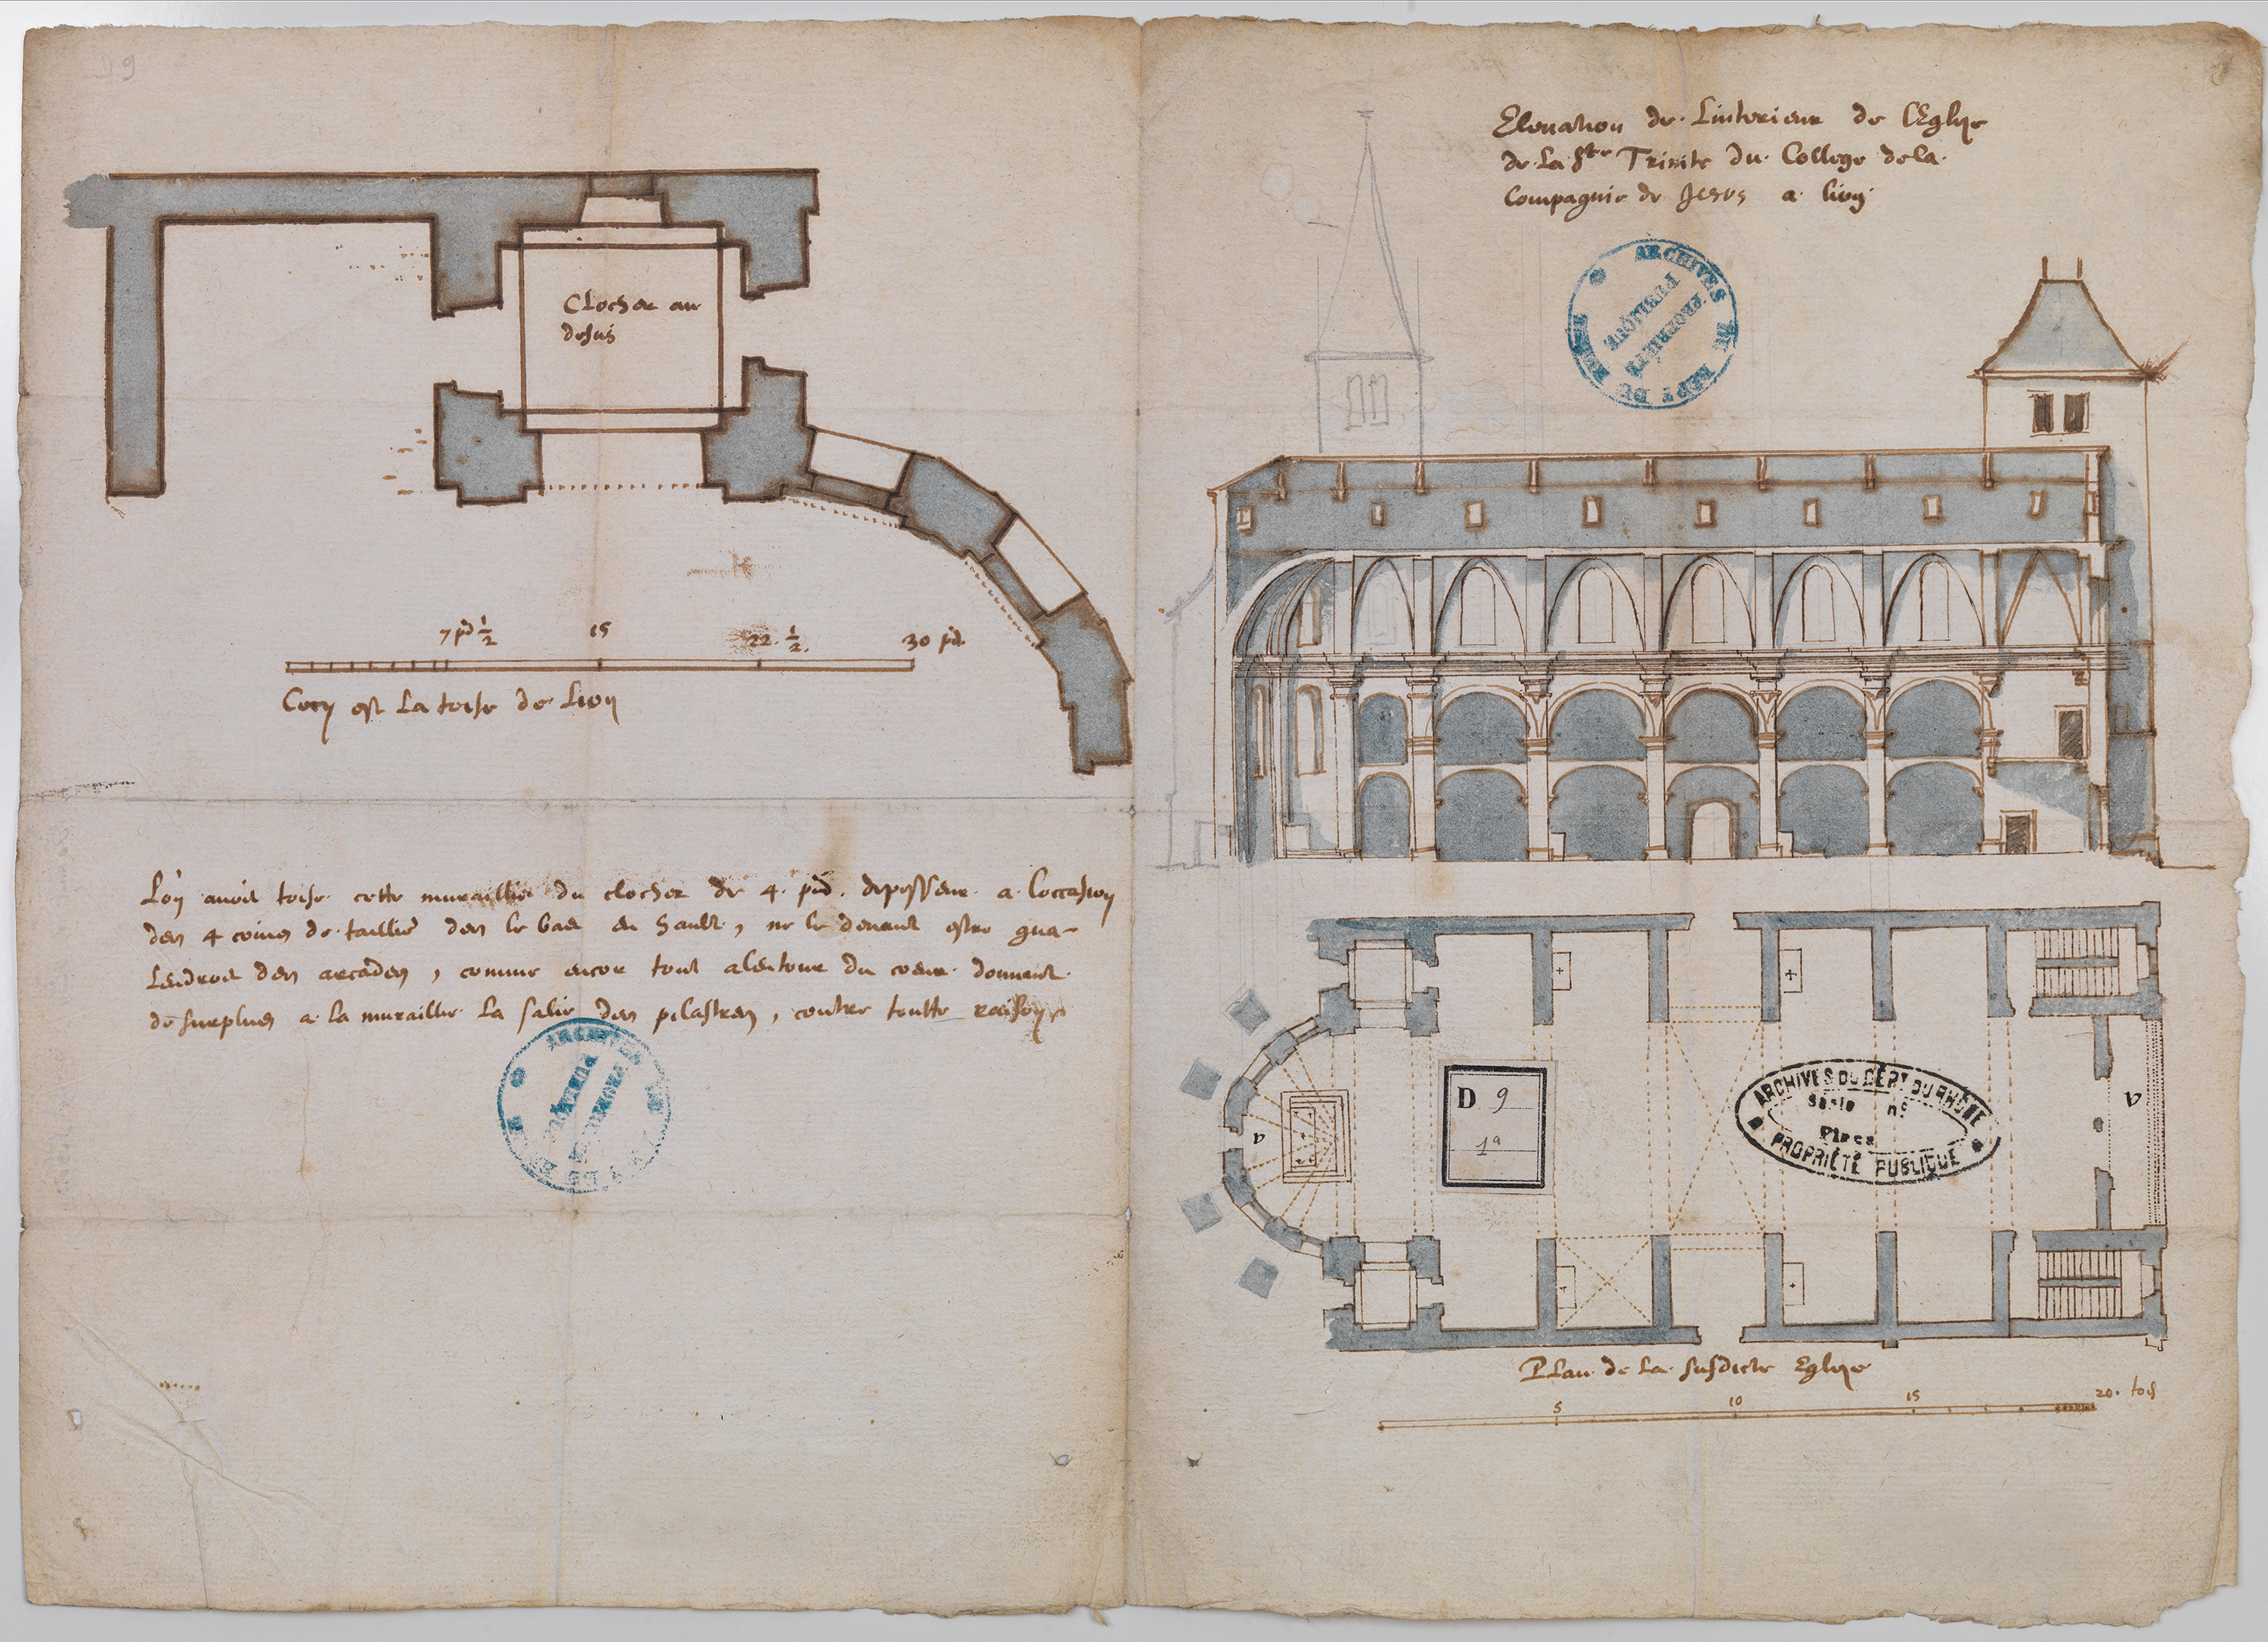 D 9
Clocher au
desus
7 pd ½
15
22. ½.
30 pd
Cecy est La toise de Lion
L'on avoit toise cette muraillie du clocher de 4. pid. depesseur a Loccasion
des 4 coins de taillie des le bas en hault, ne le devant estre qua-
Lendroit des arcades, comme encor tout alentour du coeur donnant
de surplus a la muraillie La salie des pilastres, contre toutte raison
ARCHIVES DU RHÔNE
PROPRIÉTÉ PUBLIQUE
Elevation de Linterieur de LEglise
de La Ste Trinite du College de la
Compagnie de Jesus a Lion
ARCHIVES DU DEPT DU RHÔNE
PROPRIÉTÉ PUBLIQUE
v
v
D 9
1a
ARCHIVES DU DÉPT DU RHÔNE
Série n°
Pièce
PROPRIÉTÉ PUBLIQUE
PLan de La susdicte Eglise
5
10
15
20. tois